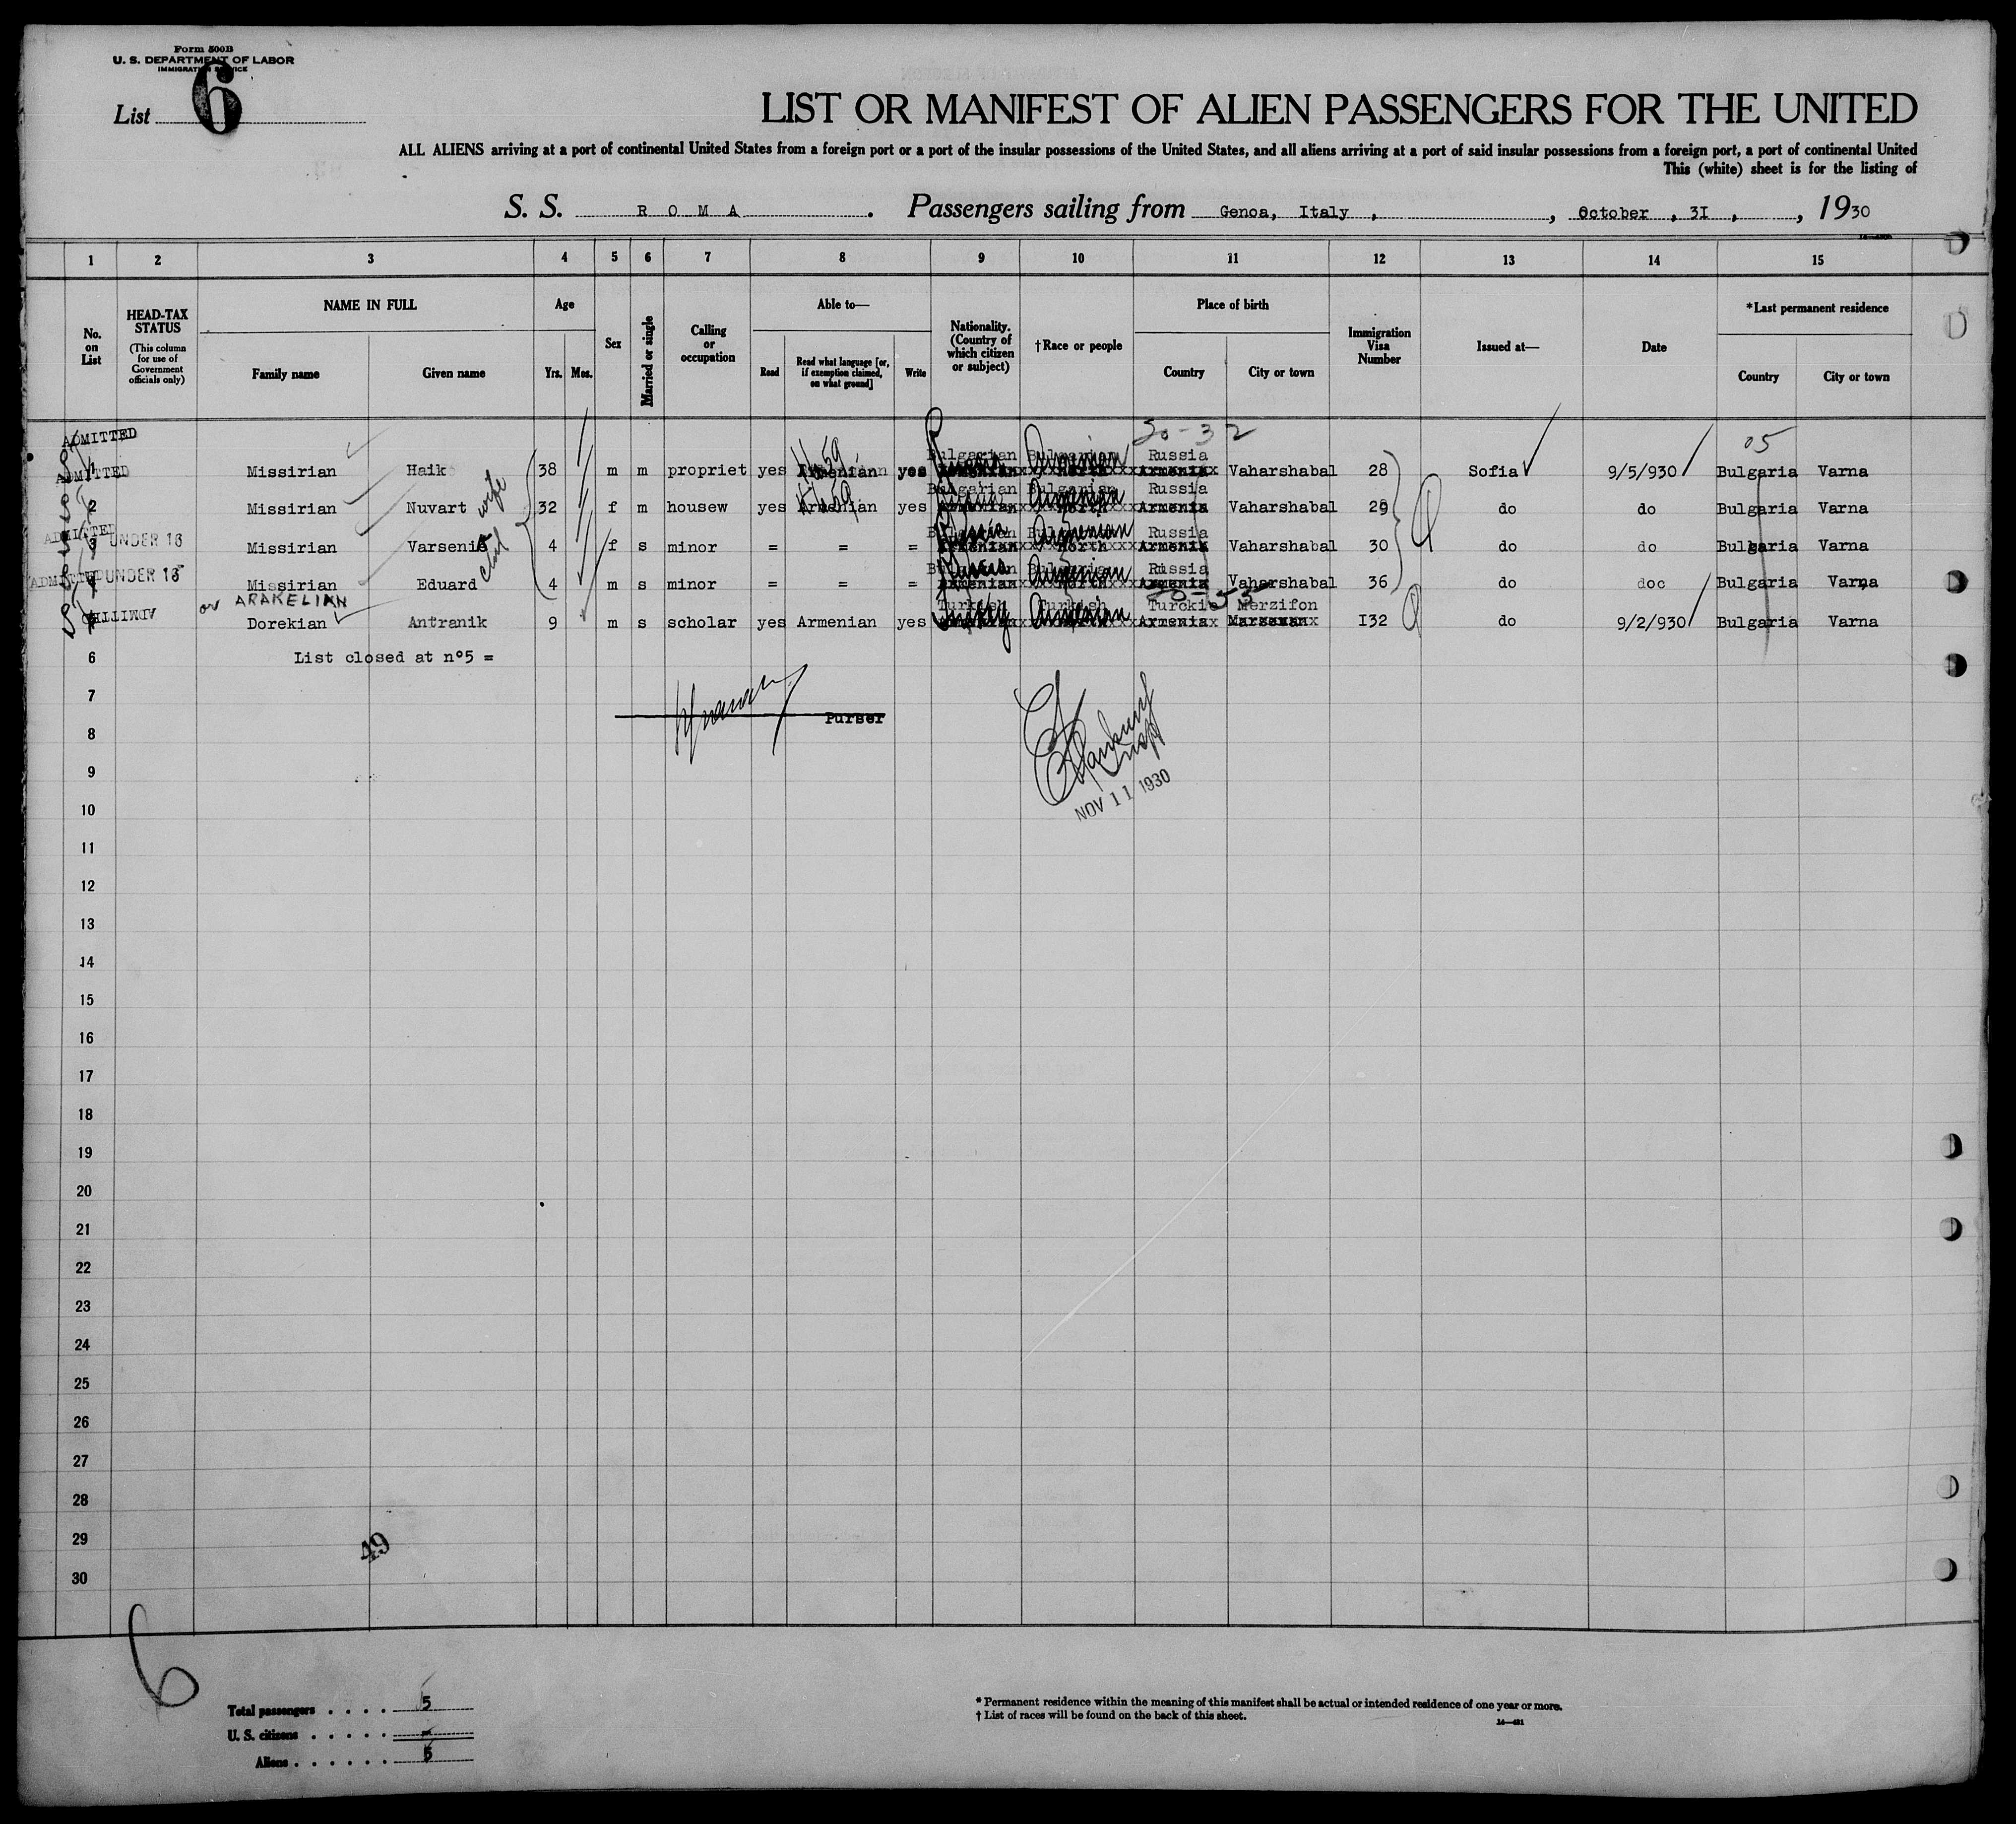 Form 500B
U. S. DEPARTMENT OF LABOR
IMMIGRATION SERVICE
List 6
LIST OR MANIFEST OF ALIEN PASSENGERS FOR THE UNITED
ALL ALIENS arriving at a port of continental United States from a foreign port or a port of the insular possessions of the United States, and all aliens arriving at a port of said insular possessions from a foreign port, a port of continental United
This (white) sheet is for the listing of
S. S. ROMA. Passengers sailing from Genoa, Italy, , October, 3I, , 1930
1 2 3 4 5 6 7 8 9 10 11 12 13 14 15
No. on List
HEAD-TAX STATUS
(This column for use of Government officials only)
NAME IN FULL
Family name Given name
Age
Yrs. Mos.
Sex
Married or single
Calling or occupation
Able to—
Read
Read what language [or, if exemption claimed, on what ground]
Write
Nationality. (Country of which citizen or subject)
†Race or people
Place of birth
Country City or town
Immigration Visa Number
Issued at—
Date
*Last permanent residence
Country City or town
20-32
05
ADMITTED
Bulgarian Bulgarian Russia
ADMITTED 1 Missirian Haik 38 m m propriet yes Armenian yes Armenian Armenia Vaharshabal 28 Sofia 9/5/930 Bulgaria Varna
wife
Bulgarian Bulgarian Russia
2 Missirian Nuvart 32 f m housew yes Armenian yes Armenian Armenia Vaharshabal 29 do do Bulgaria Varna
Russia
ADMITTED UNDER 16 3 Missirian Varsenie 4 f s minor = = = Armenian North Armenia Vaharshabal 30 do do Bulgaria Varna
Russia
ADMITTED UNDER 16 4 Missirian Eduard 4 m s minor = = = Armenian Armenia Vaharshabal 36 do doc Bulgaria Varna
or ARAKELIAN
20-53
Turkish Turkish Turckie Merzifon
ADMITTED Dorekian Antranik 9 m s scholar yes Armenian yes Turkey Armenian Armenia I32 do 9/2/930 Bulgaria Varna
6 List closed at nº5 =
7
Purser
8
9
10
NOV 11 1930
11
12
13
14
15
16
17
18
19
20
21
22
23
24
25
26
27
28
29
49
30
6
Total passengers . . . . 5
U. S. citizens . . . . . -
Aliens . . . . . . 5
* Permanent residence within the meaning of this manifest shall be actual or intended residence of one year or more.
† List of races will be found on the back of this sheet.